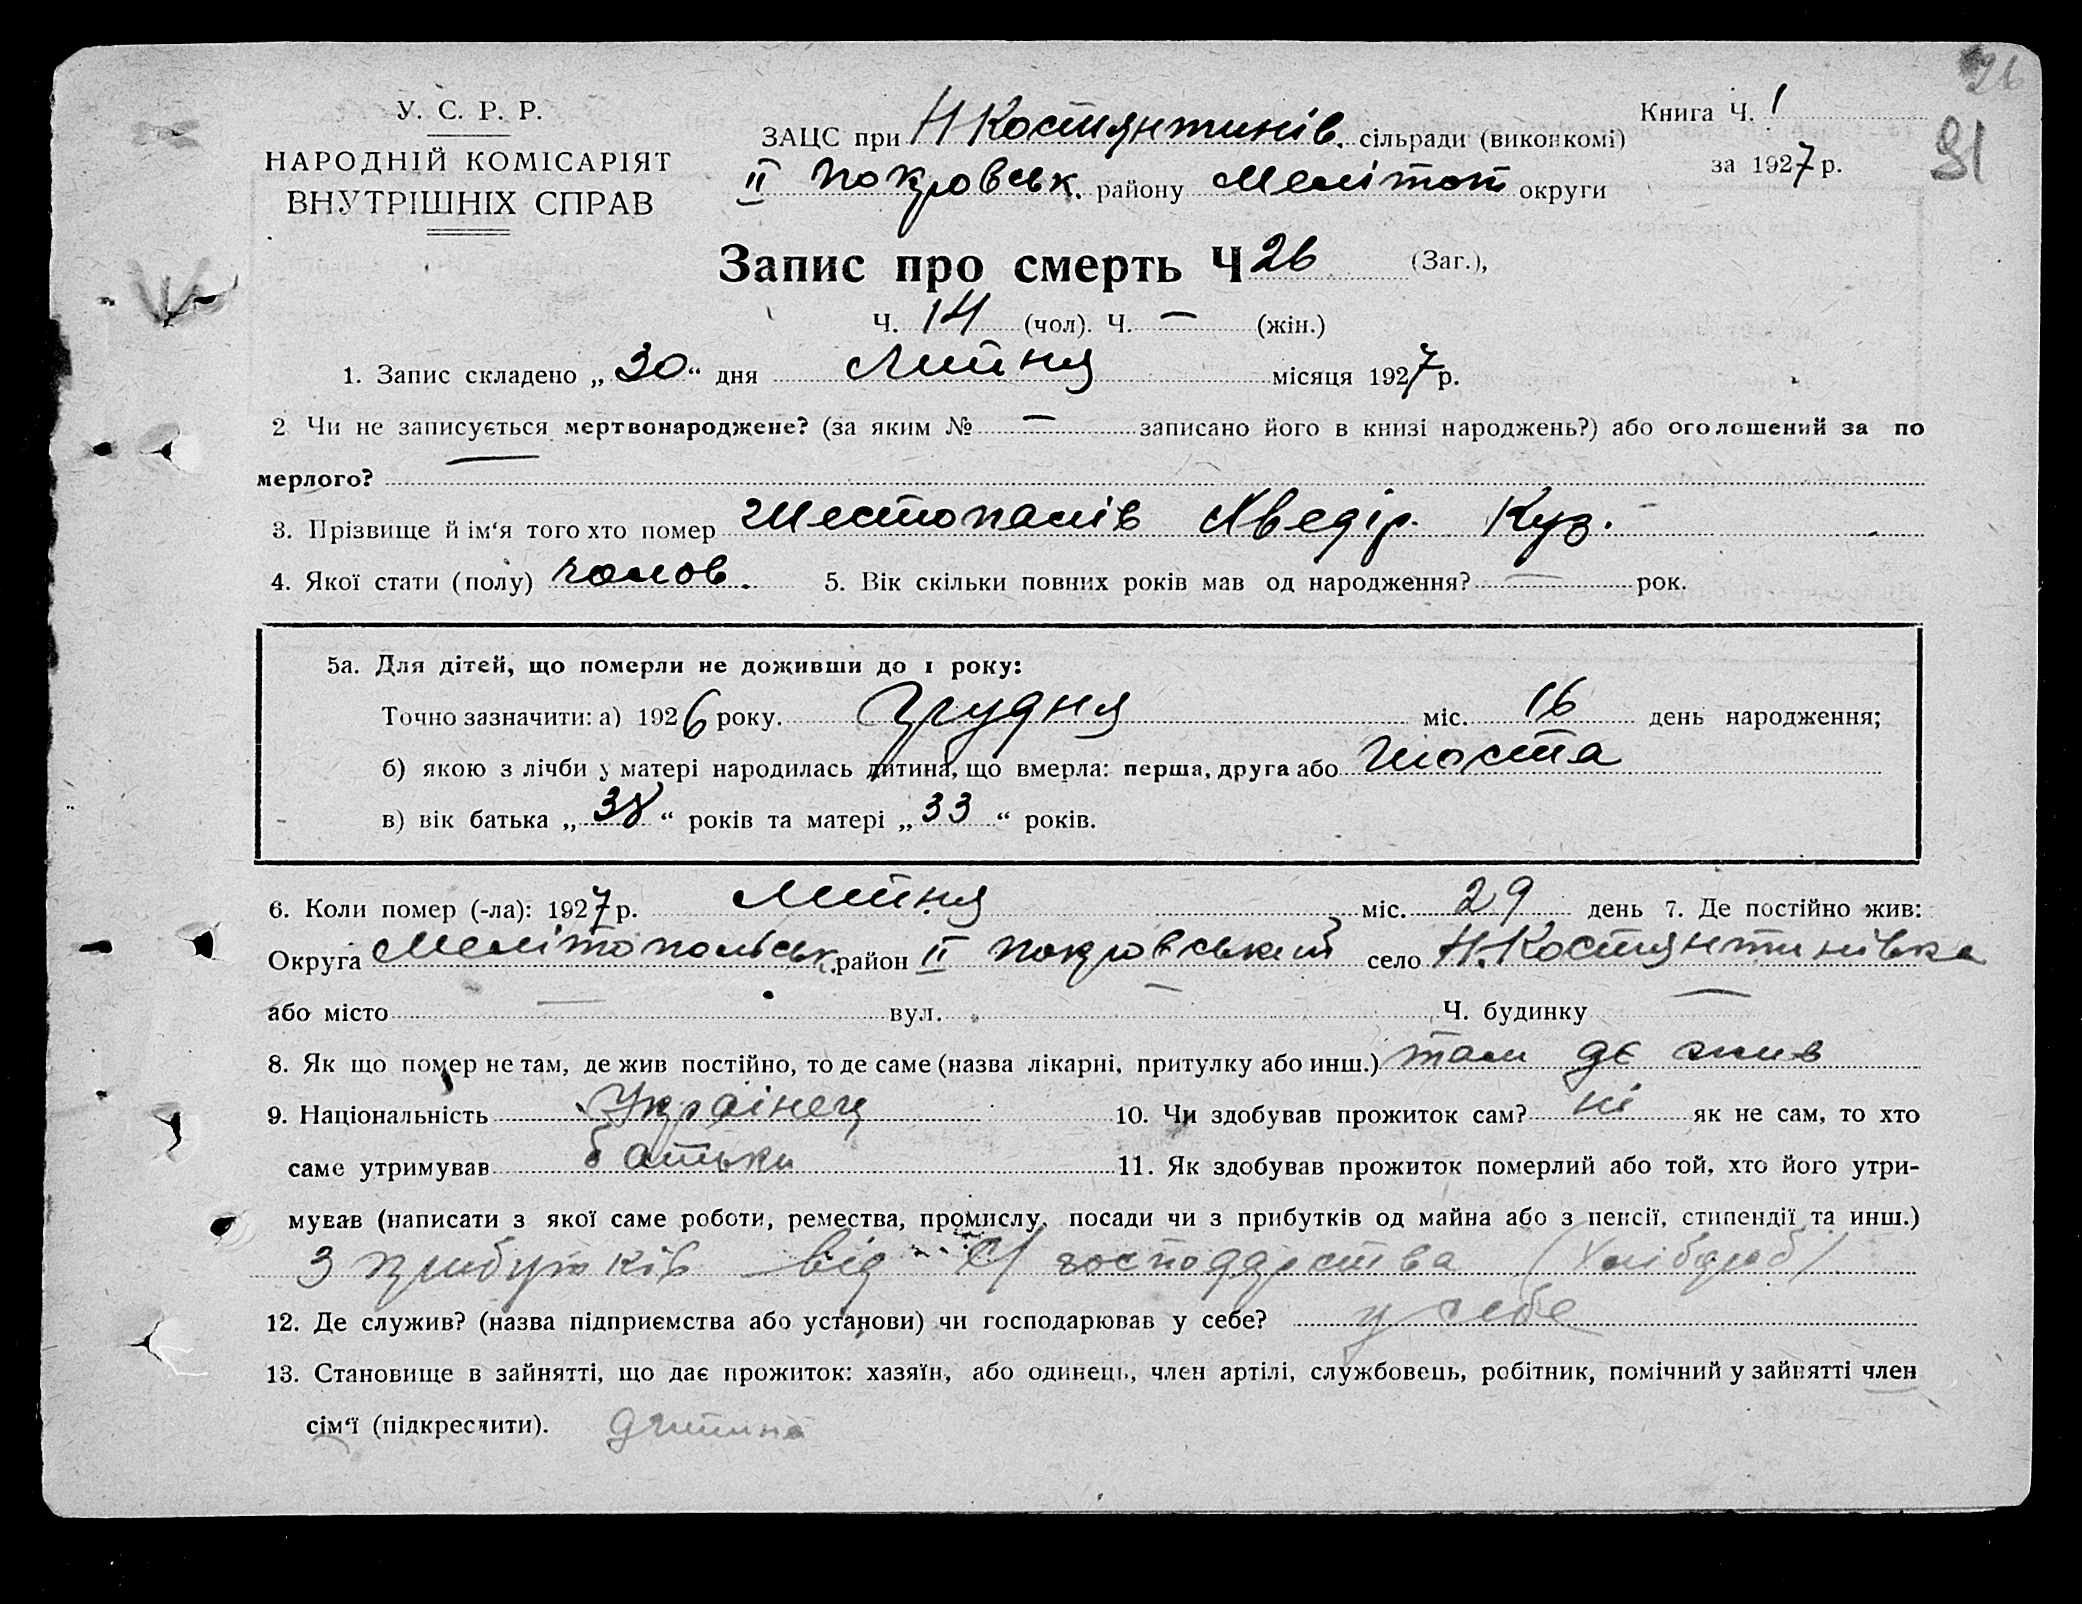 26
У. С. Р. Р.
НАРОДНІЙ КОМІСАРІЯТ
ВНУТРІШНІХ СПРАВ
ЗАЦС при Н Костянтинів. сільради (виконкомі)
ІІ Покровськ. району Мелітоп округи
Книга Ч. 1
за 1927 р.
91
Запис про смерть Ч 26 (Заг.),
Ч. 14 (чол). Ч. — (жін.)
1. Запис складено „30“ дня Липня місяця 1927 р.
2 Чи не записується мертвонароджене? (за яким № — записано його в книзі народжень?) або оголошений за по
мерлого? —
3. Прізвище й ім‘я того хто помер Шестопалів Хведір. Куз.
4. Якої стати (полу) чолов. 5. Вік скільки повних років мав од народження? — рок.
5а. Для дітей, що померли не доживши до 1 року:
Точно зазначити: а) 1926 року. Грудня міс. 16 день народження;
б) якою з лічби у матері народилась дитина, що вмерла: перша, друга або шоста
в) вік батька „38“ років та матері „33“ років.
6. Коли помер (-ла): 1927 р. Липня міс. 29 день 7. Де постійно жив:
Округа Мелітопольськ. район ІІ Покровський село Н. Костянтинівка
або місто — вул. — Ч. будинку —
8. Як що помер не там, де жив постійно, то де саме (назва лікарні, притулку або инш.) там де жив
9. Національність Українец 10. Чи здобував прожиток сам? ні як не сам, то хто
саме утримував батьки 11. Як здобував прожиток померлий або той, хто його утри-
мував (написати з якої саме роботи, ремества, промислу, посади чи з прибутків од майна або з пенсії, стипендії та инш.)
З прибутків від с/господарства (Хлібороб)
12. Де служив? (назва підприємства або установи) чи господарював у себе? у себе
13. Становище в зайнятті, що дає прожиток: хазяїн, або одинець, член артілі, службовець, робітник, помічний у зайнятті член
сім‘ї (підкреслити). дитина